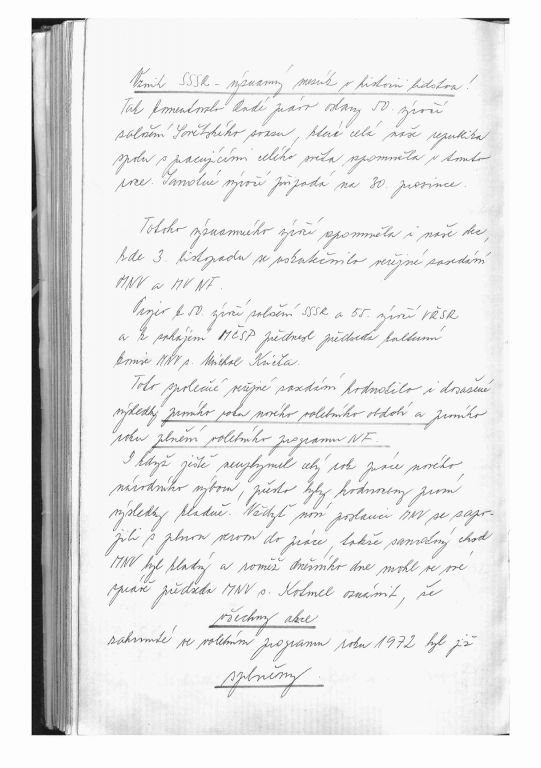 Vznik SSSR – významný mezník v historii lidstva!
Tak komentovalo Rudé právo oslavy 50. výročí
založení Sovětského svazu, které celá naše republika
spolu s pracujícími celého světa vzpomněla v tomto
roce. Samotné výročí připadá na 30. prosince.
Tohoto významného výročí vzpomněla i naše obec,
kde 3. listopadu se uskutečnilo veřejné zasedání
MNV a MV NF.
Projev k 50. výročí založení SSSR a 55. výročí VŘSR
a k zahájení MČSP přednesl předseda kulturní
komise MNV s. Michal
Toto společné veřejné zasedání hodnotilo i dosažené
výsledky prvního roku nového volebního období a prvního
roku plnění volebního programu NF.
I když ještě neuplynul celý rok práce nového
národního výboru, přesto byly hodnoceny první
výsledky kladně. Vždyť noví poslanci MNV se zapo-
jili s plnou vervou do práce, takže samotný chod
MNV byl kladný a rovněž dnešního dne mohl ve své
zprávě předseda MNV s. oznámit, že
všechny akce
zahrnuté ve volebním programu roku 1972 byly již
splněny.